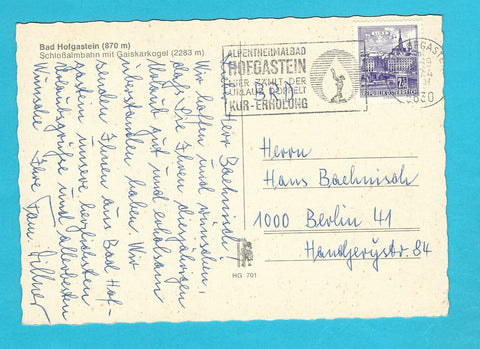 Bad Hofgastein (870 m)
Schloßalmbahn mit Gaiskarkogel (2283 m)
Guter Herr Bachnisch!
Wir hoffen und wünschen,
daß Sie Ihren diesjährigen
Urlaub gut und erholsam
überstanden haben. Wir
senden Ihnen aus Bad Hof-
gastein unsere herzlichsten
Urlaubsgrüße und allerbesten
Wünsche Ihre Fam. Hillner
HG 701
ALPENTHERMALBAD
HOFGASTEIN
HIER ZÄHLT DER
URLAUB DOPPELT
KUR-ERHOLUNG
BRD
5630
Herrn
Hans Bachnisch
1000 Berlin 41
Handjerystr. 84